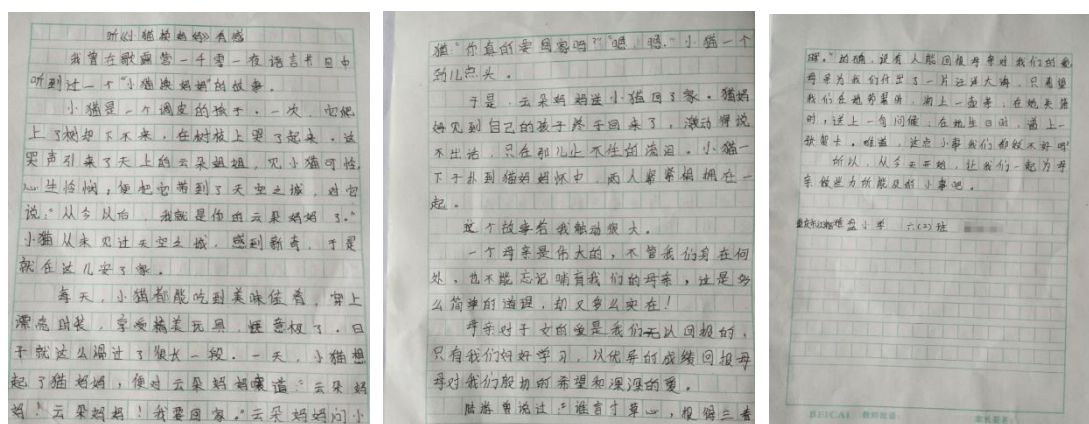 听《小猫换妈妈》有感
我曾在歌露营一千零一夜语言节目中
听到过一个“小猫换妈妈”的故事。
小猫是一个调皮的孩子。一次，它爬
上了树却下不来，在树枝上哭了起来。这
哭声引来了天上的云朵姐姐，见小猫可怜，
心生怜悯，便把它带到了天空之城，对它
说：“从今以后，我就是你的云朵妈妈了。”
小猫从未见过天空之城，感到新奇，于是
就在这儿安了家。
每天，小猫都能吃到美味佳肴，穿上
漂亮时装，享受精美玩具，惬意极了。日
子就这么过了很长一段。一天，小猫想
起了猫妈妈，便对云朵妈妈嚷道：“云朵妈
妈！云朵妈妈！我要回家。”云朵妈妈问小
猫：“你真的要回家吗？”“嗯，嗯。”小猫一个
劲儿点头。
于是，云朵妈妈送小猫回了家。猫妈
妈见到自己的孩子终于回来了，激动得说
不出话，只在那儿止不住的流泪。小猫一
下子扑到猫妈妈怀中，两人紧紧相拥在一
起。
这个故事令我触动很大。
一个母亲是伟大的，不管我们身在何
处，也不能忘记哺育我们的母亲，这是多
么简单的道理，却又多么实在！
母亲对子女的爱是我们无以回报的，
只有我们好好学习，以优异的成绩回报母
母对我们殷切的希望和深深的爱。
陆游曾说过：“谁言寸草心，报得三春
晖。”的确，没有人能回报母亲对我们的爱，
母亲为我们付出了一片汪洋大海，只希望
我们在她劳累时，
时，送上一句问候；在她生日时，递上一
张贺卡。难道，这点小事我们都做不好吗？
所以，从今天开始，让我们一起为母
亲做些力所能及的小事吧。
小学 六(2)班
BEICAI